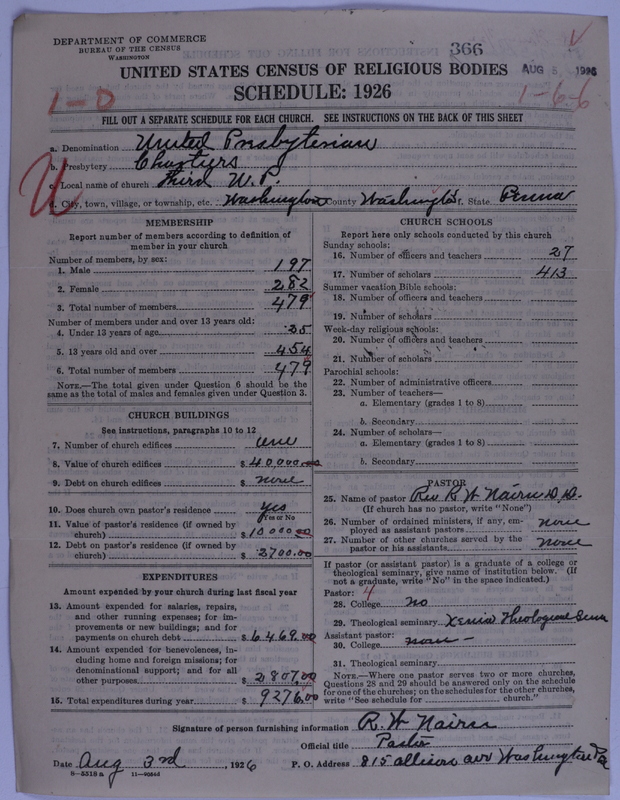 DEPARTMENT OF COMMERCE
BUREAU OF THE CENSUS
WASHINGTON
366
AUG 5, 1926
UNITED STATES CENSUS OF RELIGIOUS BODIES
SCHEDULE: 1926
1-0
1-6-6
FILL OUT A SEPARATE SCHEDULE FOR EACH CHURCH. SEE INSTRUCTIONS ON THE BACK OF THIS SHEET
a. Denomination United Presbyterian
b. Presbytery Chartiers
c. Local name of church Third U.P.
d. City, town, village, or township, etc. Washington County Washington State Penna
U
MEMBERSHIP
Report number of members according to definition of member in your church
Number of members, by sex:
1. Male 197
2. Female 282
3. Total number of members 479
Number of members under and over 13 years old:
4. Under 13 years of age 25
5. 13 years old and over 454
6. Total number of members 479
NOTE.—The total given under Question 6 should be the same as the total of males and females given under Question 3.
CHURCH BUILDINGS
See instructions, paragraphs 10 to 12
7. Number of church edifices one
8. Value of church edifices $ 40,000.00
9. Debt on church edifices $ none
10. Does church own pastor's residence Yes
Yes or No
11. Value of pastor's residence (if owned by church) $ 10000.00
12. Debt on pastor's residence (if owned by church) $ 2700.00
EXPENDITURES
Amount expended by your church during last fiscal year
13. Amount expended for salaries, repairs, and other running expenses; for improvements or new buildings; and for payments on church debt $ 6469.00
14. Amount expended for benevolences, including home and foreign missions; for denominational support; and for all other purposes $ 2807.00
15. Total expenditures during year $ 9276.00
CHURCH SCHOOLS
Report here only schools conducted by this church
Sunday schools:
16. Number of officers and teachers 27
17. Number of scholars 413
Summer vacation Bible schools:
18. Number of officers and teachers
19. Number of scholars
Week-day religious schools:
20. Number of officers and teachers
21. Number of scholars
Parochial schools:
22. Number of administrative officers
23. Number of teachers—
a. Elementary (grades 1 to 8)
b. Secondary
24. Number of scholars—
a. Elementary (grades 1 to 8)
b. Secondary
PASTOR
25. Name of pastor Rev. R. W. Nairn D.D.
(If church has no pastor, write "None")
26. Number of ordained ministers, if any, employed as assistant pastors none
27. Number of other churches served by the pastor or his assistants none
If pastor (or assistant pastor) is a graduate of a college or theological seminary, give name of institution below. (If not a graduate, write "No" in the space indicated.)
Pastor: 4
28. College no
29. Theological seminary Xenia Theological Sem
Assistant pastor:
30. College none -
31. Theological seminary
NOTE.—Where one pastor serves two or more churches, Questions 28 and 29 should be answered only on the schedule for one of the churches; on the schedules for the other churches, write "See schedule for church."
Signature of person furnishing information R. W. Nairn
Official title Pastor
Date Aug 3rd, 1926 P. O. Address 815 Allison ave Washington Pa
8—5518 a 11—9054b